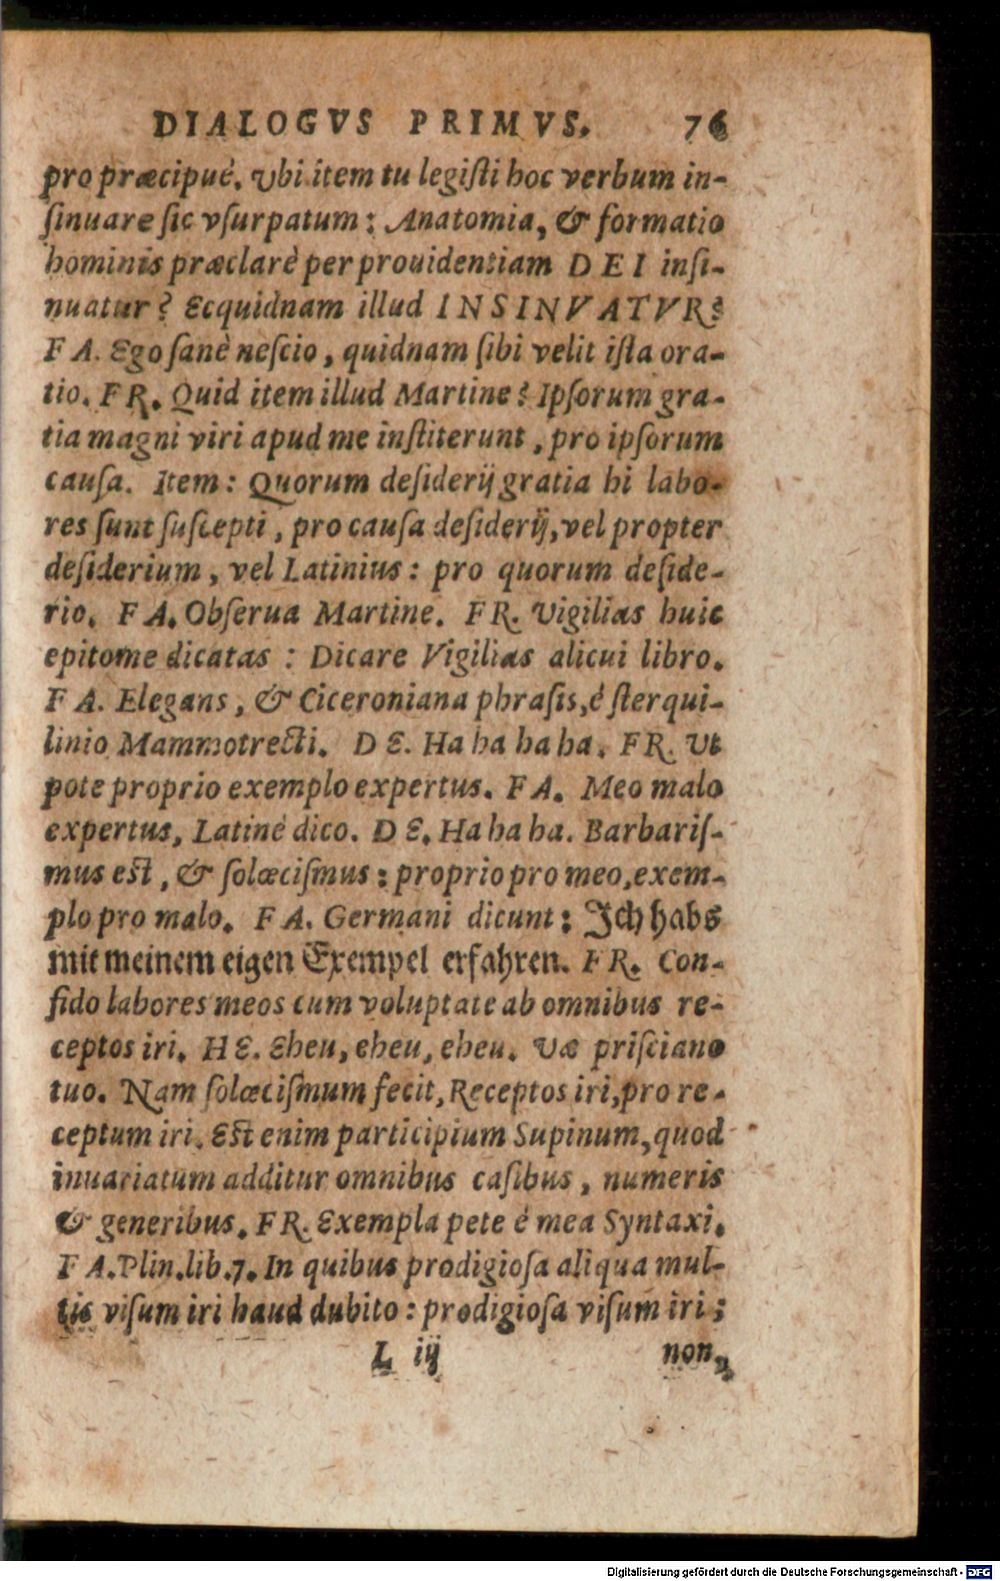 DIALOGVS PRIMVS. 76
pro præcipuè. Vbi item tu legiſti hoc verbum in-
ſinuare ſic vſurpatum: Anatomia, & formatio
hominis præclarè per prouidentiam DEI inſi-
nuatur? Ecquidnam illud INSINVATVR?
FA. Ego ſanè neſcio, quidnam ſibi velit iſta ora-
tio. FR. Quid item illud Martine? Ipſorum gra-
tia magni viri apud me inſtiterunt, pro ipſorum
cauſa. Item: Quorum deſiderij gratia hi labo-
res ſunt ſuſcepti, pro cauſa deſiderij, vel propter
deſiderium, vel Latinius: pro quorum deſide-
rio. FA. Obſerua Martine. FR. Vigilias huic
epitome dicatas: Dicare Vigilias alicui libro.
FA. Elegans, & Ciceroniana phraſis, é ſterqui-
linio Mammotrecti. DE. Ha ha ha ha. FR. Vt
pote proprio exemplo expertus. FA. Meo malo
expertus, Latiné dico. DE. Ha ha ha. Barbariſ-
mus eſt, & ſolœciſmus: proprio pro meo, exem-
plo pro malo. FA. Germani dicunt: Ich habs
mit meinem eigen Exempel erfahren. FR. Con-
fido labores meos cum voluptate ab omnibus re-
ceptos iri. HE. Eheu, eheu, eheu. Væ priſciano
tuo. Nam ſolœciſmum fecit, Receptos iri, pro re-
ceptum iri. Eſt enim participium Supinum, quod
inuariatum additur omnibus caſibus, numeris
& generibus. FR. Exempla pete é mea Syntaxi.
FA. Plin. lib. 7. In quibus prodigioſa aliqua mul-
tis viſum iri haud dubito: prodigioſa viſum iri;
L iij non,
Digitalisierung gefördert durch die Deutsche Forschungsgemeinschaft - DFG